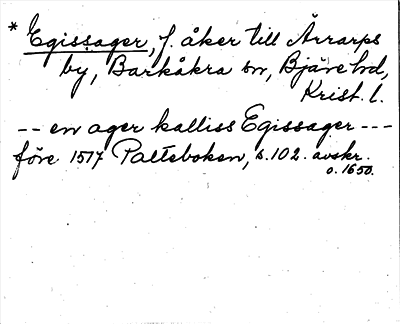 * Egissager, f. åker till Ärrarps
by, Barkåkra sn, Bjäre hd,
Krist. l.
-- en ager kalliss Egissager ---
före 1517 Palteboken, s. 102. avskr.
o. 1650.